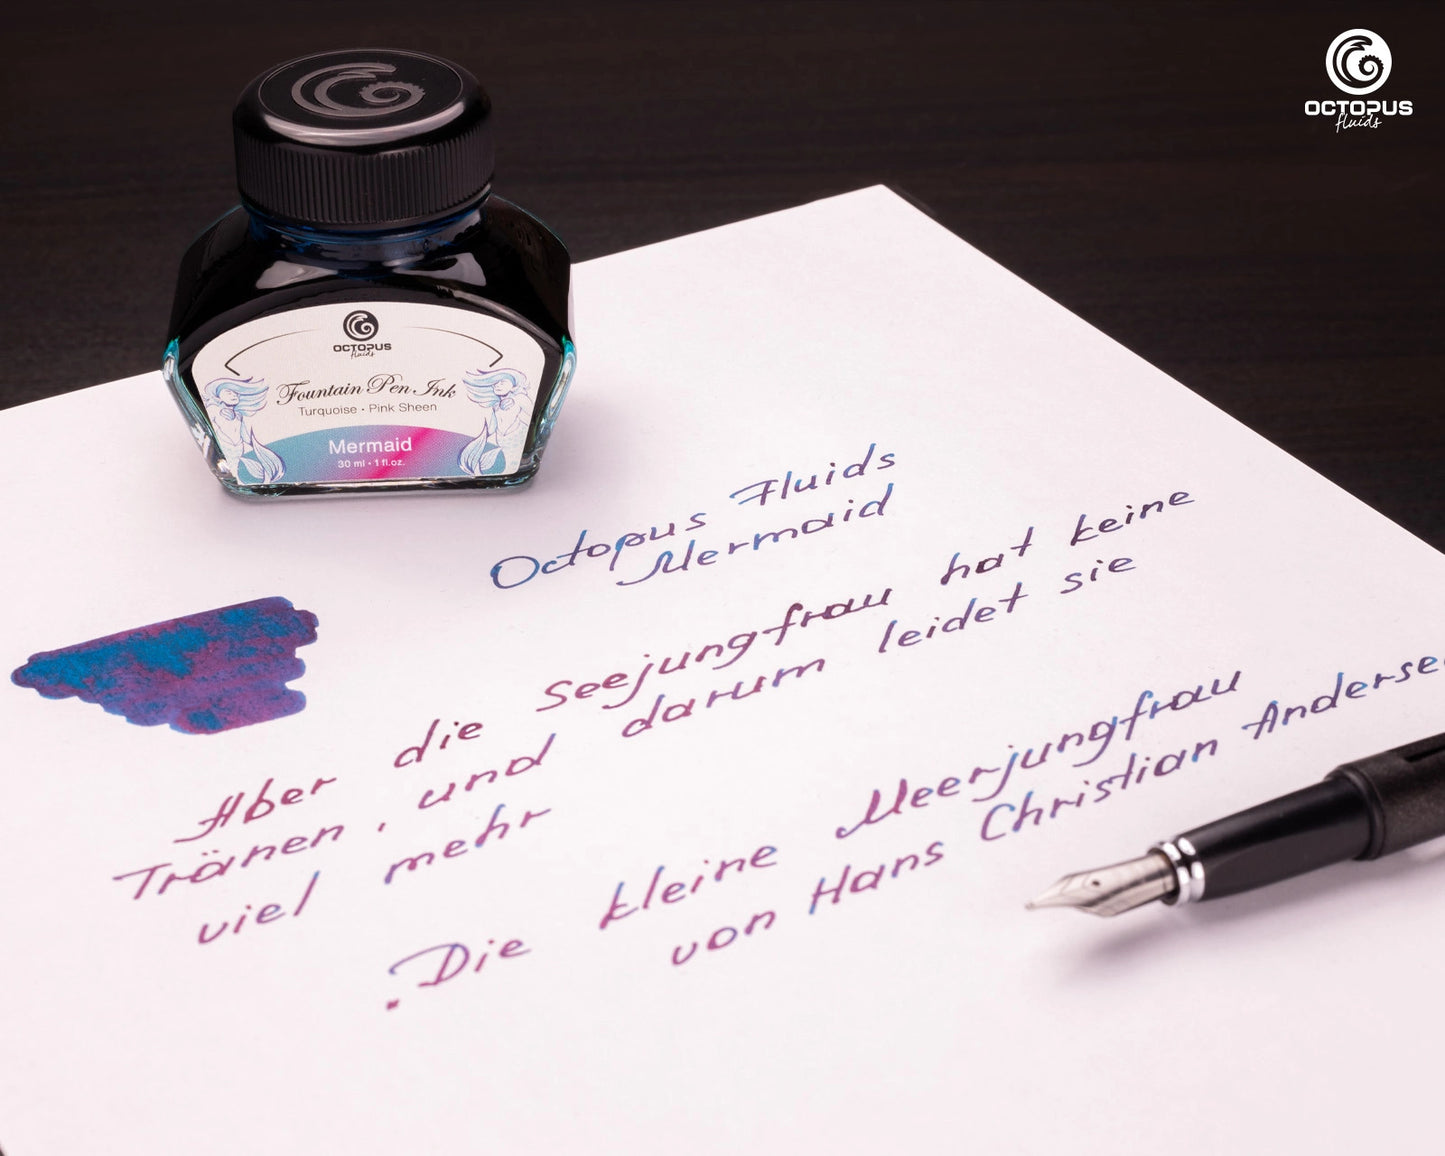 OCTOPUS
fluids
OCTOPUS
fluids
Fountain Pen Ink
Turquoise • Pink Sheen
Mermaid
30 ml • 1 fl.oz.
Octopus Fluids
Mermaid
Aber die Seejungfrau hat keine
Tränen, und darum leidet sie
viel mehr
„Die kleine Meerjungfrau
von Hans Christian Anderse